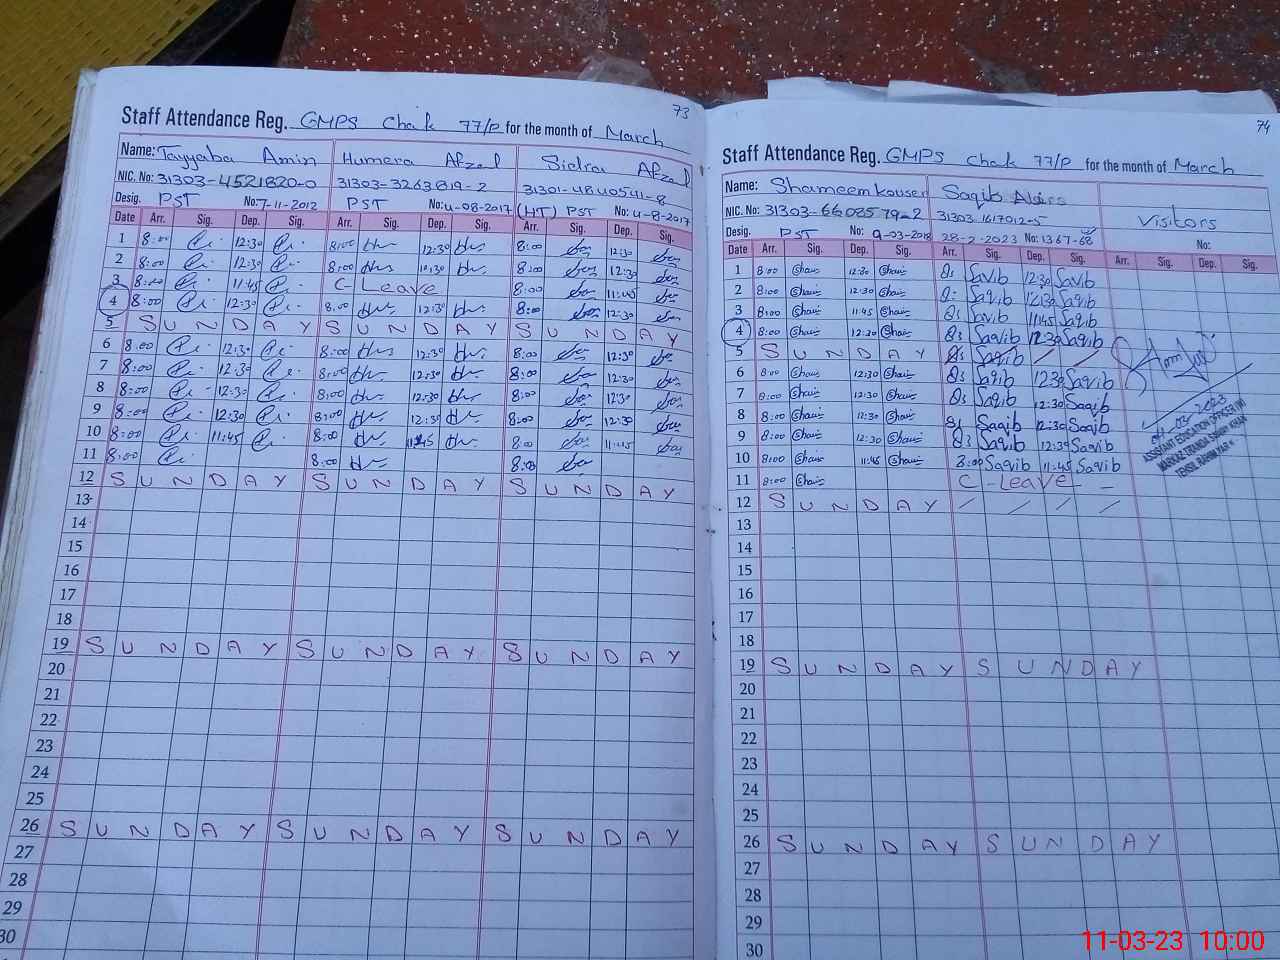 73
Staff Attendance Reg. GMPS Chak 77/P for the month of March
Name: Tayyaba Amin Humera Afzal Sidra Afzal
NIC. No: 31303-4521820-0 31303-3263819-2 31301-4840541-8
Desig. PST No: 7-11-2012 PST No: 4-08-2017 (HT) PST No: 4-8-2017
Date Arr. Sig. Dep. Sig. Arr. Sig. Dep. Sig. Arr. Sig. Dep. Sig.
1 8:00 12:30 8:00 12:30 8:00 12:30
2 8:00 12:30 8:00 12:30 8:00 12:30
3 8:00 11:45 C Leave 8:00 11:45
4 8:00 12:30 8:00 12:30 8:00 12:30
5 SUNDAY SUNDAY SUNDAY
6 8:00 12:30 8:00 12:30 8:00 12:30
7 8:00 12:30 8:00 12:30 8:00 12:30
8 8:00 12:30 8:00 12:30 8:00 12:30
9 8:00 12:30 8:00 12:30 8:00 12:30
10 8:00 11:45 8:00 11:45 8:00 11:45
11 8:00 8:00 8:00
12 SUNDAY SUNDAY SUNDAY
13
14
15
16
17
18
19 SUNDAY SUNDAY SUNDAY
20
21
22
23
24
25
26 SUNDAY SUNDAY SUNDAY
27
28
29
30
74
Staff Attendance Reg. GMPS Chak 77/P for the month of March
Name: Shameem Kouser Saqib
NIC. No: 31303-6608579-2 31303-1617012-5 Visitors
Desig. PST No: 9-03-2018 28-2-2023 No: 1367-68 No:
Date Arr. Sig. Dep. Sig. Arr. Sig. Dep. Sig. Arr. Sig. Dep. Sig.
1 8:00 Sham 12:30 Sham Saqib 12:30 Saqib
2 8:00 Sham 12:30 Sham Saqib 12:30 Saqib
3 8:00 Sham 11:45 Sham Saqib 11:45 Saqib
4 8:00 Sham 12:30 Sham Saqib 12:30 Saqib
5 SUNDAY Saqib
6 8:00 Sham 12:30 Sham Saqib 12:30 Saqib
7 8:00 Sham 12:30 Sham Saqib 12:30 Saqib
8 8:00 Sham 12:30 Sham Saqib 12:30 Saqib
9 8:00 Sham 12:30 Sham Saqib 12:30 Saqib
10 8:00 Sham 11:45 Sham 8:00 Saqib 11:45 Saqib
11 8:00 Sham C-Leave
12 SUNDAY
13
14
15
16
17
18
19 SUNDAY SUNDAY
20
21
22
23
24
25
26 SUNDAY SUNDAY
27
28
29
30
ASSISTANT EDUCATION OFFICER
11-03-23 10:00